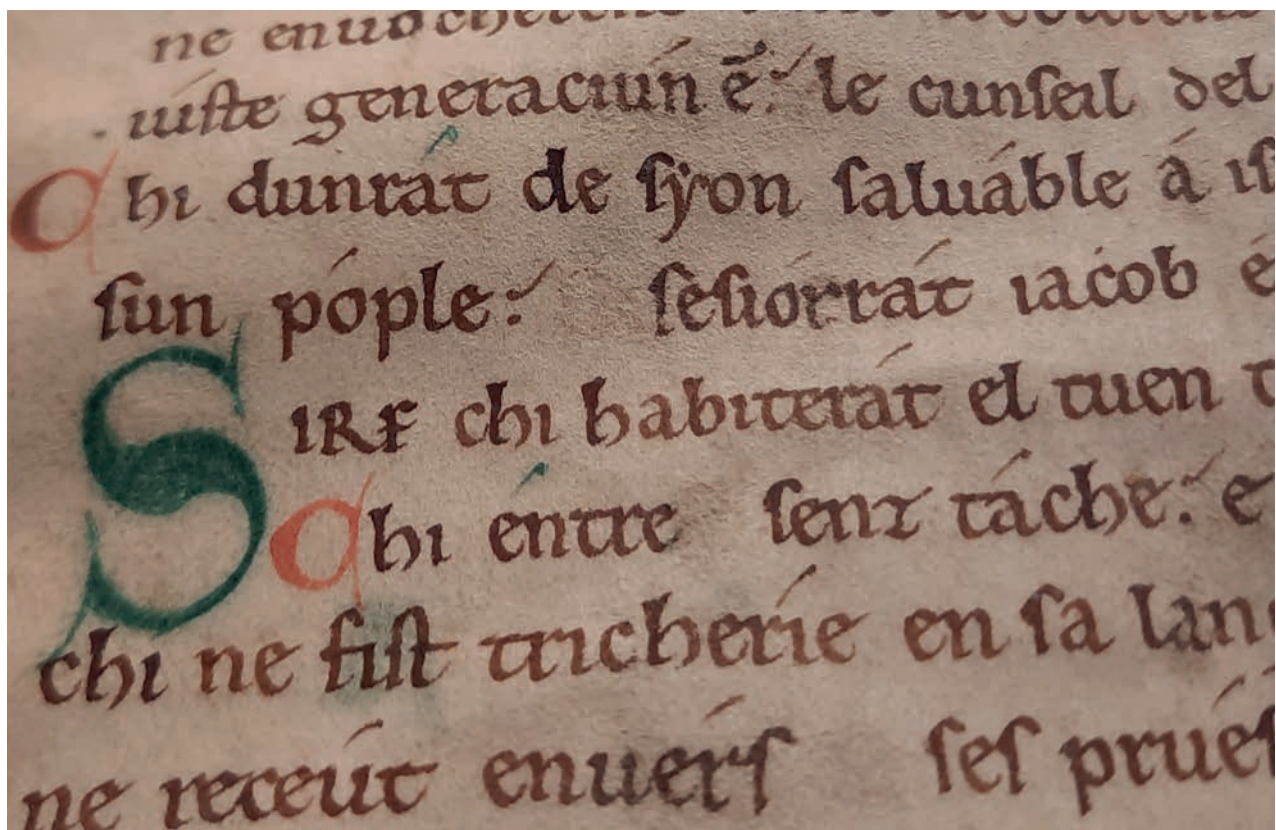 ne enuocherent
iuste generaciún ē: le cunseil del
Chi dunrát de sẏon saluáble á is
sun póple: sesiorrát iacob é
SIRE chi habiterát el tuen t
Chi éntre senz táche: e
chi ne fist tricheríe en sa lan
ne receút enuérs ses prués